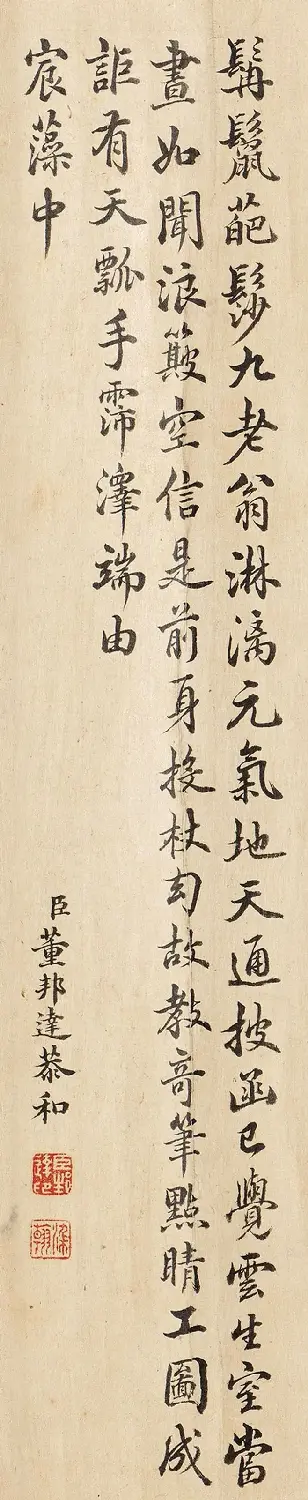 髯鬣葩髿九老翁淋漓元氣地天通披函已覺雲生室當
晝如聞浪簸空信是前身投杖幻故教奇筆點睛工圖成
詎有天瓢手霈澤端由
宸藻中
臣董邦達恭和